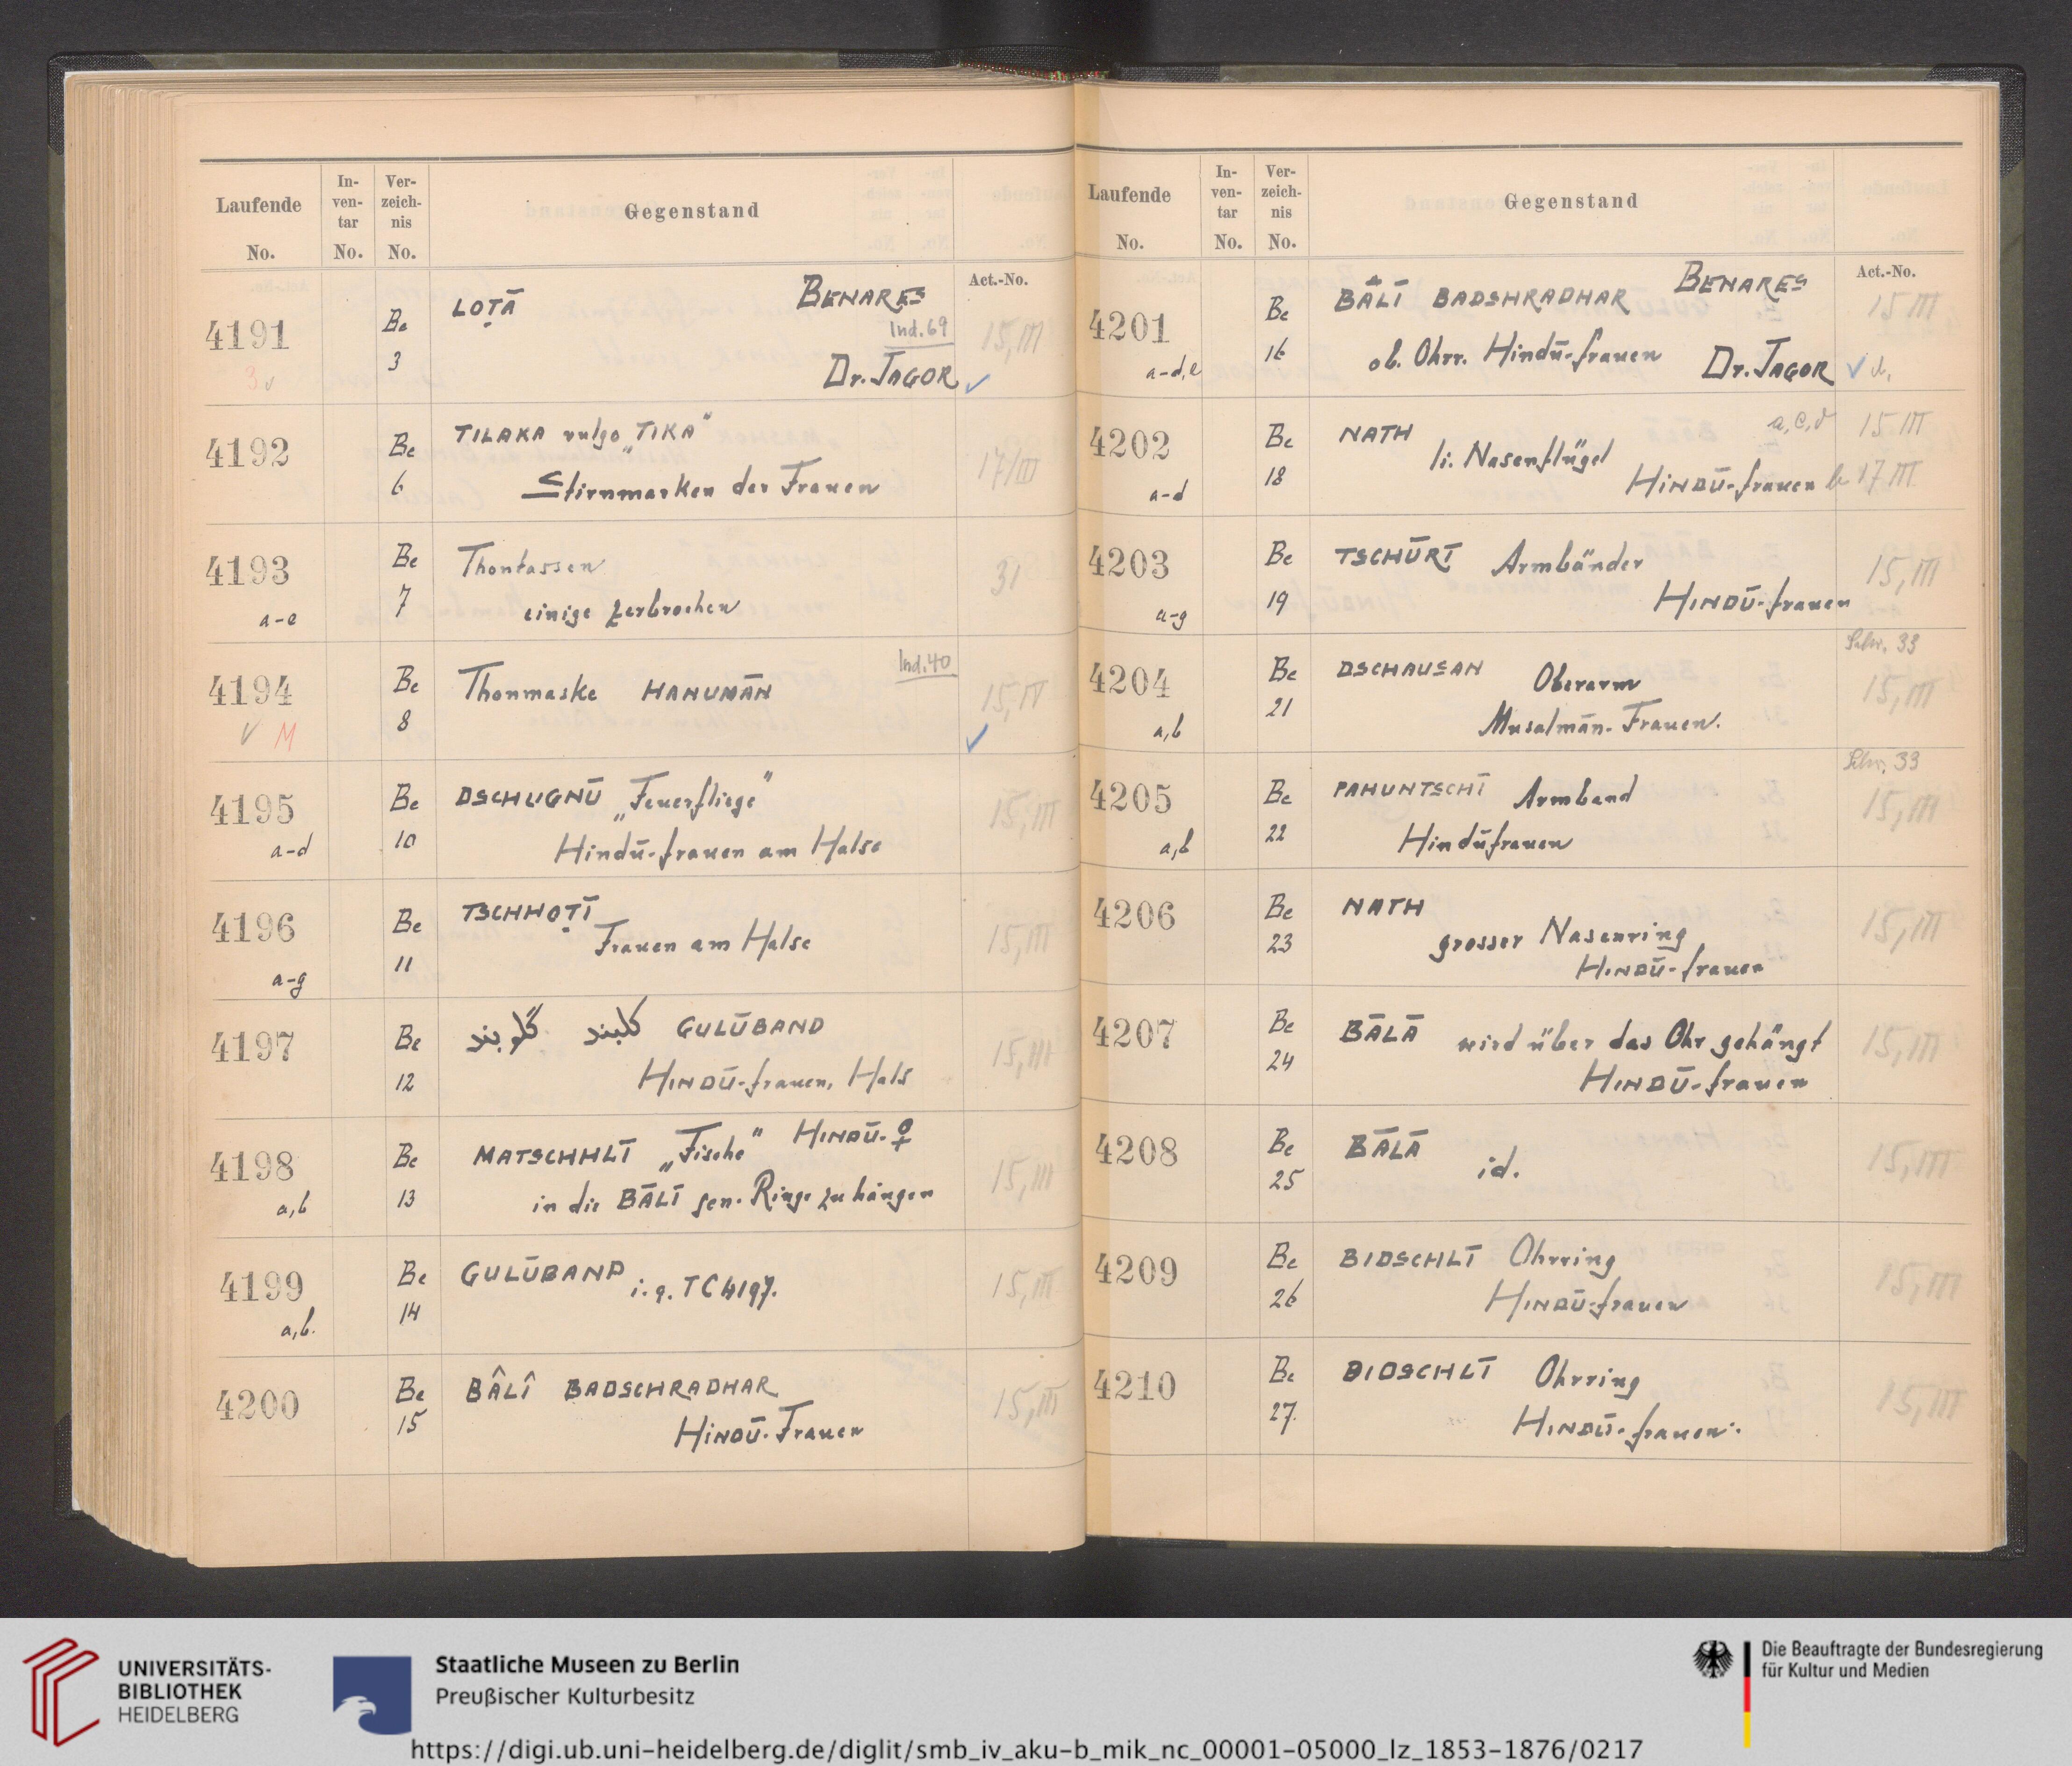 Laufende
No.
In-
ven-
tar
No.
Ver-
zeich-
nis
No.
Gegenstand
Act.-No.
4191
3
Be
3
LOṬĀ
BENARES
Ind. 69
Dr. JAGOR
15, III
4192
Be
6
TILAKA vulgo „TIKA"
Stirnmarken der Frauen
17/III
4193
a-e
Be
7
Thontassen
einige zerbrochen
31
4194
M
Be
8
Thonmaske HANUMĀN
Ind. 40
15, IV
4195
a-d
Be
10
DSCHUGNŪ „Feuerfliege"
Hindū-frauen am Halse
15, III
4196
a-g
Be
11
TSCHHOṬĪ
Frauen am Halse
15, III
4197
Be
12
گلوبند گلبند GULŪBAND
HINDŪ-frauen, Hals
15, III
4198
a,b
Be
13
MATSCHHLĪ „Fische" HINDŪ-♀
in die BĀLĪ gen. Ringe zu hängen
15, III
4199
a,b.
Be
14
GULŪBAND i. q. TC 4197.
15, III
4200
Be
15
BÂLÎ BADSCHRADHAR
HINDŪ-Frauen
15, III
Laufende
No.
In-
ven-
tar
No.
Ver-
zeich-
nis
No.
Gegenstand
Act.-No.
4201
a-d,e
Be
16
BĀLĪ BADSHRADHAR
BENARES
ob. Ohrr. Hindū-frauen Dr. JAGOR
15 III
4202
a-d
Be
18
NATH
li. Nasenflügel
HINDŪ-frauen
a,c,d 15 III
b 17 III
4203
a-g
Be
19
TSCHŪRĪ Armbänder
HINDŪ-frauen
15, III
4204
a,b
Be
21
DSCHAUSAN Oberarm
Musalmān-Frauen.
Schr. 33
15, III
4205
a,b
Be
22
PAHUNTSCHĪ Armband
Hindūfrauen
Schr. 33
15, III
4206
Be
23
NATH
grosser Nasenring
HINDŪ-frauen
15, III
4207
Be
24
BĀLĀ wird über das Ohr gehängt
HINDŪ-frauen
15, III
4208
Be
25
BĀLĀ id.
15, III
4209
Be
26
BIDSCHLĪ Ohrring
HINDŪ-frauen
15, III
4210
Be
27.
BIDSCHLĪ Ohrring
HINDŪ-frauen.
15, III
UNIVERSITÄTS-
BIBLIOTHEK
HEIDELBERG
Staatliche Museen zu Berlin
Preußischer Kulturbesitz
Die Beauftragte der Bundesregierung
für Kultur und Medien
https://digi.ub.uni-heidelberg.de/diglit/smb_iv_aku-b_mik_nc_00001-05000_lz_1853-1876/0217